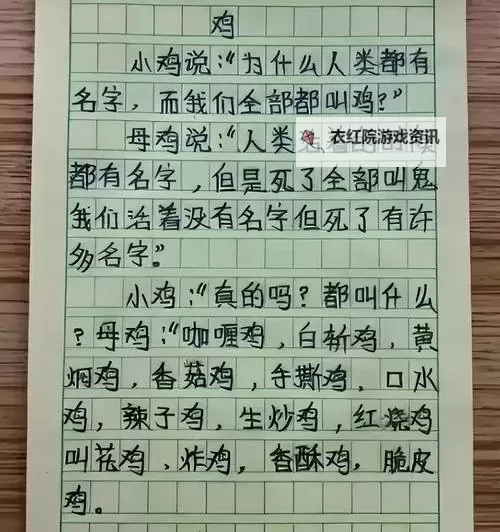 鸡
小鸡说：“为什么人类都有
名字，而我们全部都叫鸡？”
母鸡说：“人类
衣红院游戏资讯
都有名字，但是死了全部叫鬼
我们活着没有名字但死了有许
多名字”。
小鸡：“真的吗？都叫什么
？母鸡：“咖喱鸡，白斩鸡，黄
焖鸡，香菇鸡，手撕鸡，口水
鸡，辣子鸡，生炒鸡，红烧鸡
叫花鸡、炸鸡，香酥鸡，脆皮
鸡。